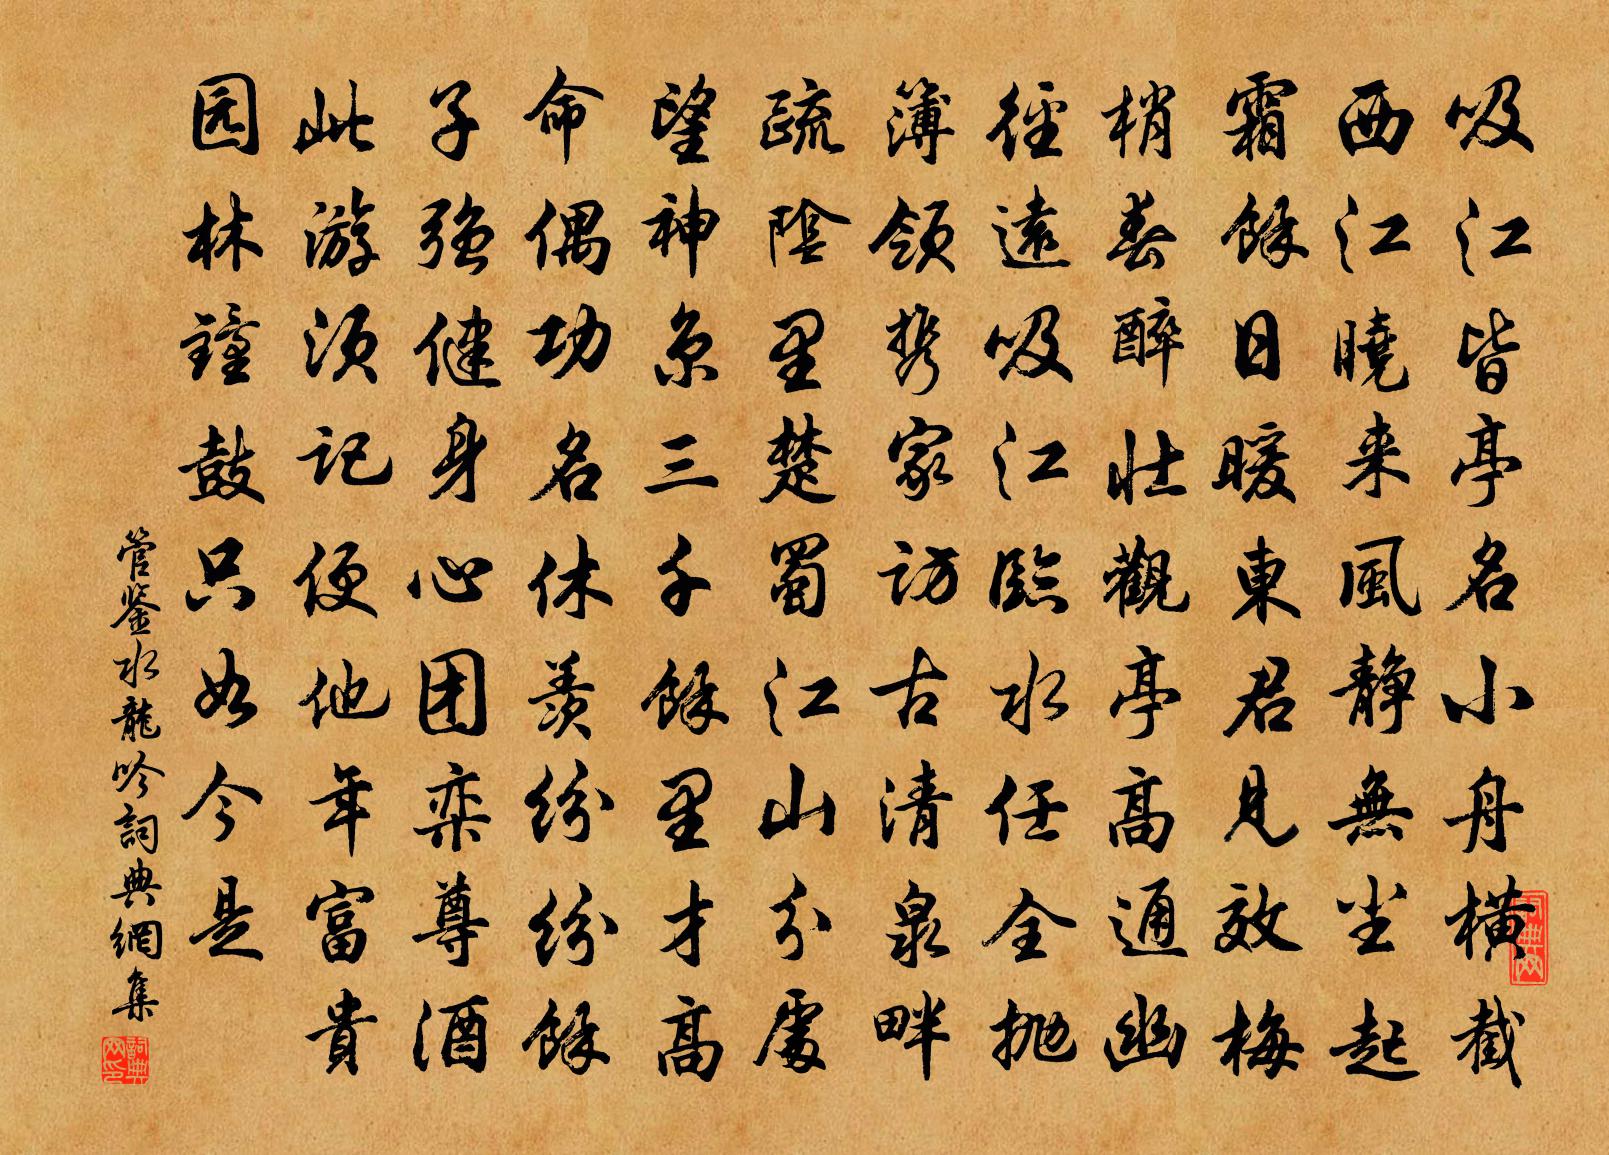 吸江皆亭名小舟横截
西江曉来風静無尘起
霜餘日暖東君見效梅
梢春醉壮觀亭高通幽
徑遠吸江臨水任全抛
簿領携家訪古清泉畔
疏陰里楚蜀江山分處
望神京三千餘里才高
命偶功名休羡纷纷餘
子强健身心团栾尊酒
此游须记便他年富貴
园林鐘鼓只如今是
管鉴水龍吟詞典網集
詞典网
詞典网印